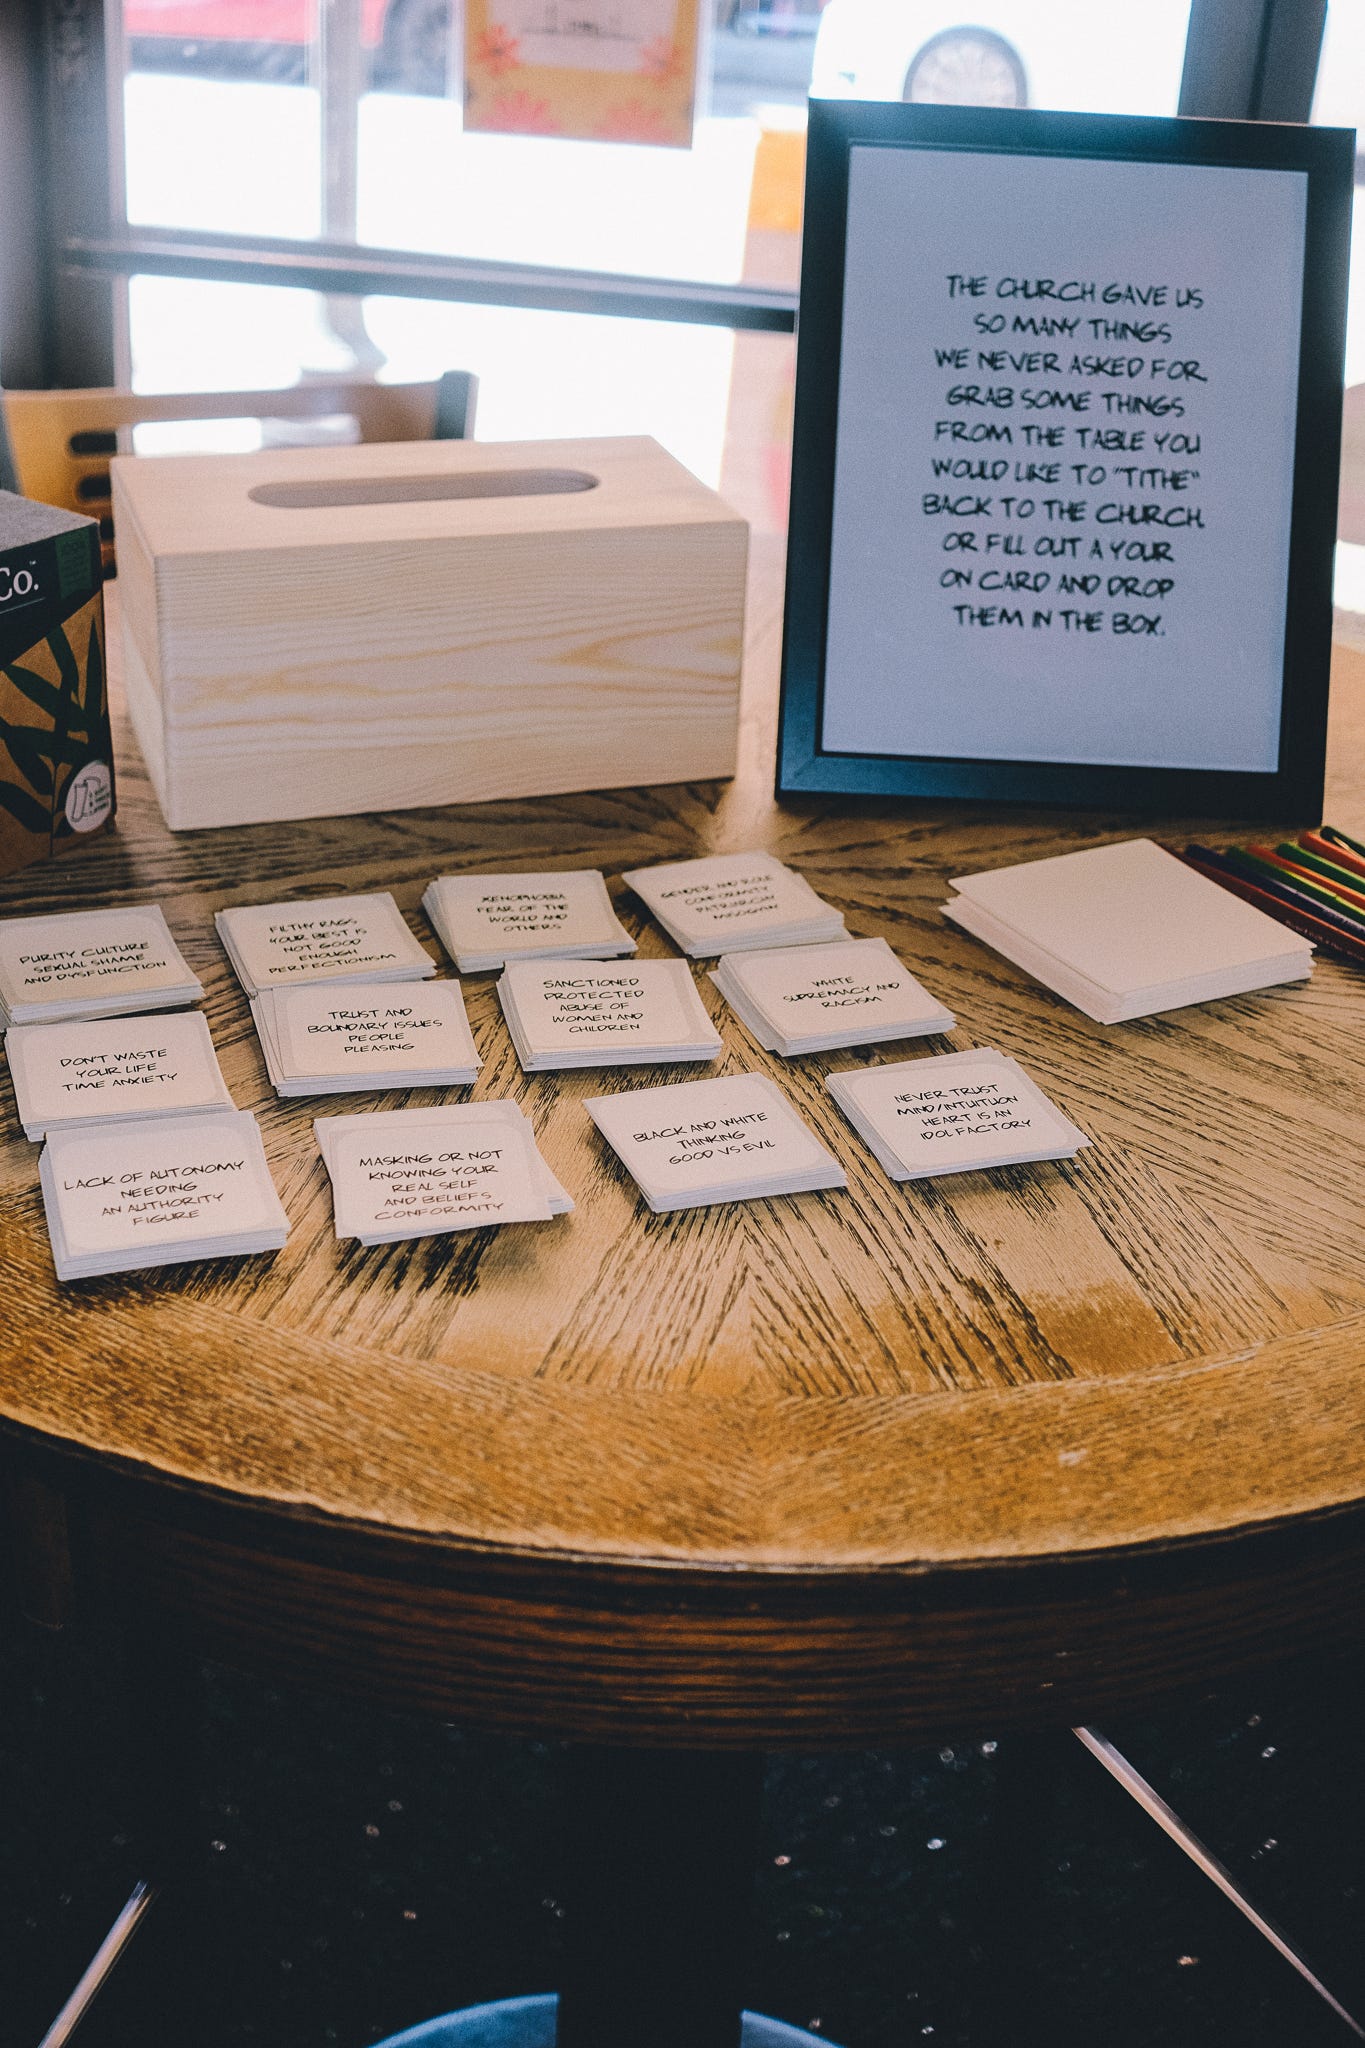 THE CHURCH GAVE US
SO MANY THINGS
WE NEVER ASKED FOR
GRAB SOME THINGS
FROM THE TABLE YOU
WOULD LIKE TO "TITHE"
BACK TO THE CHURCH.
OR FILL OUT A YOUR
ON CARD AND DROP
THEM IN THE BOX.
Co.™
PURITY CULTURE
SEXUAL SHAME
AND DYSFUNCTION
FILTHY RAGS
YOUR BEST IS
NOT GOOD
ENOUGH
PERFECTIONISM
XENOPHOBIA
FEAR OF THE
WORLD AND
OTHERS
GENDER AND ROLE
CONFORMITY
PATRIARCHY
MISOGYNY
DON'T WASTE
YOUR LIFE
TIME ANXIETY
TRUST AND
BOUNDARY ISSUES
PEOPLE
PLEASING
SANCTIONED
PROTECTED
ABUSE OF
WOMEN AND
CHILDREN
WHITE
SUPREMACY AND
RACISM
LACK OF AUTONOMY
NEEDING
AN AUTHORITY
FIGURE
MASKING OR NOT
KNOWING YOUR
REAL SELF
AND BELIEFS
CONFORMITY
BLACK AND WHITE
THINKING
GOOD VS EVIL
NEVER TRUST
MIND/INTUITUION
HEART IS AN
IDOL FACTORY